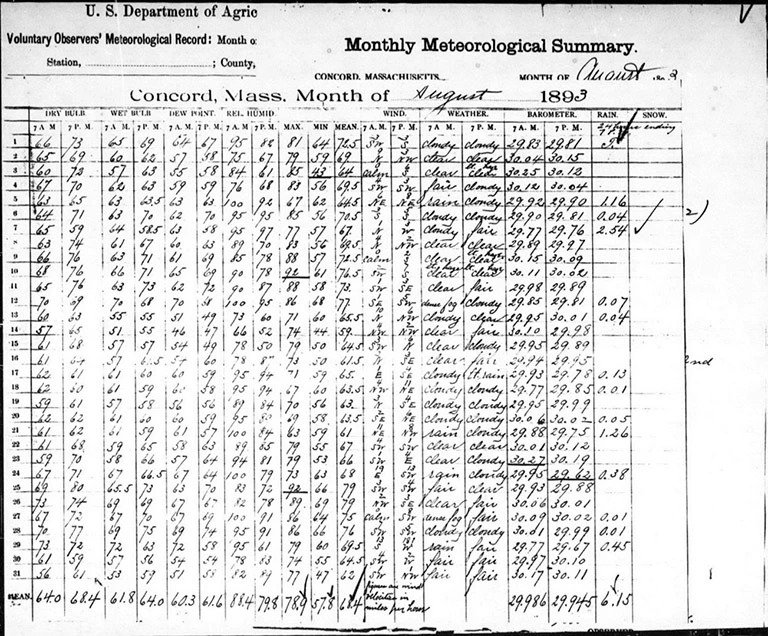 U. S. Department of Agric
Voluntary Observers' Meteorological Record: Month o
Station, ; County,
Monthly Meteorological Summary.
CONCORD, MASSACHUSETTS. MONTH OF August 1893
Concord, Mass. Month of August 1893
DRY BULB. WET BULB DEW POINT. REL. HUMID. WIND. WEATHER. BAROMETER. RAIN. SNOW.
7 A.M. 7 P.M. 7 A.M. 7 P.M. 7 A.M. 7 P.M. 7 A.M. 7 P.M. MAX. MIN. MEAN. 7 A.M. 7 P.M. 7 A.M. 7 P.M. 7 A.M. 7 P.M.
1 66 73 65 69 64 67 95 82 81 64 72.5 SW S cloudy cloudy 29.83 29.81 T.
2 65 69 60 62 57 58 75 67 79 59 69 N NW clear clear 30.04 30.15
3 60 72 57 63 55 58 84 61 85 43 64 calm S clear 30.25 30.12
4 67 70 62 63 59 59 76 68 83 56 69.5 SW SW fair cloudy 30.12 30.04
5 63 65 63 63.5 63 63 100 92 67 62 64.5 NE NE rain cloudy 29.92 29.90 1.16
6 64 71 63 70 62 70 95 95 85 56 70.5 S S cloudy cloudy 29.90 29.81 0.04
7 65 59 64 58.5 63 58 95 97 77 57 67 N W cloudy fair 29.77 29.76 2.54
8 63 74 61 67 60 63 89 70 83 56 69.5 N NW clear clear 29.89 29.97
9 66 76 63 71 61 69 85 78 88 57 72.5 calm S clear clear 30.15 30.09
10 68 76 66 71 65 69 90 78 92 61 76.5 SW S clear clear 30.11 30.02
11 65 76 63 73 62 72 90 87 88 58 73 SW SE clear fair 29.98 29.89
12 70 69 70 68 70 68 100 95 86 68 77 SE SW dense fog cloudy 29.85 29.81 0.07
13 60 63 55 55 51 49 73 60 71 60 65.5 N N cloudy clear 29.95 30.01 0.04
14 57 65 51 55 46 47 66 52 74 44 59 NW NW clear fair 30.10 29.98
15 61 68 57 57 54 49 78 50 79 50 64.5 SW N clear cloudy 29.95 29.89
16 61 64 57 54 60 78 73 50 61.5 N SE clear fair 29.94 29.95
17 62 61 61 60 60 59 95 94 71 59 65 E SE cloudy lt. rain 29.93 29.78 0.13
18 62 60 61 59 60 58 95 94 67 60 63.5 NW NW cloudy cloudy 29.77 29.85 0.01
19 59 61 57 58 56 56 89 84 70 56 63 N SE cloudy cloudy 29.95 29.99
20 62 62 61 60 60 59 95 69 58 63.5 SE NE cloudy cloudy 30.06 30.02 0.05
21 61 62 61 59 61 57 100 84 63 59 61 NE NW rain cloudy 29.88 29.75 1.26
22 61 68 59 65 58 63 89 65 79 55 67 SW SW clear clear 30.01 30.12
23 59 70 58 66 57 64 94 81 79 53 66 SW SE clear cloudy 30.27 30.19
24 67 71 67 66.5 67 64 100 79 73 63 68 E SW rain cloudy 29.95 29.62 0.38
25 69 80 65.5 73 63 70 83 72 92 66 79 SW SW fair clear 29.93 29.88
26 73 74 69 69 67 67 82 78 89 69 79 NW SE clear fair 30.06 30.01
27 67 72 67 70 67 69 100 91 86 64 75 calm SW dense fog fair 30.09 30.02 0.01
28 70 77 69 75 69 74 95 91 86 66 76 SW SW cloudy cloudy 30.01 29.99 0.01
29 73 72 72 63 72 58 95 61 79 60 69.5 S W rain fair 29.77 29.67 0.45
30 61 59 57 56 54 54 78 83 74 55 64.5 SW W fair fair 29.97 30.10
31 56 61 53 59 51 58 82 89 77 47 62 SW NW fair fair 30.17 30.11
MEAN. 64.0 68.4 61.8 64.0 60.3 61.6 88.4 79.8 78.9 57.8 68.4 figures are wind velocities in miles per hour 29.986 29.945 6.15